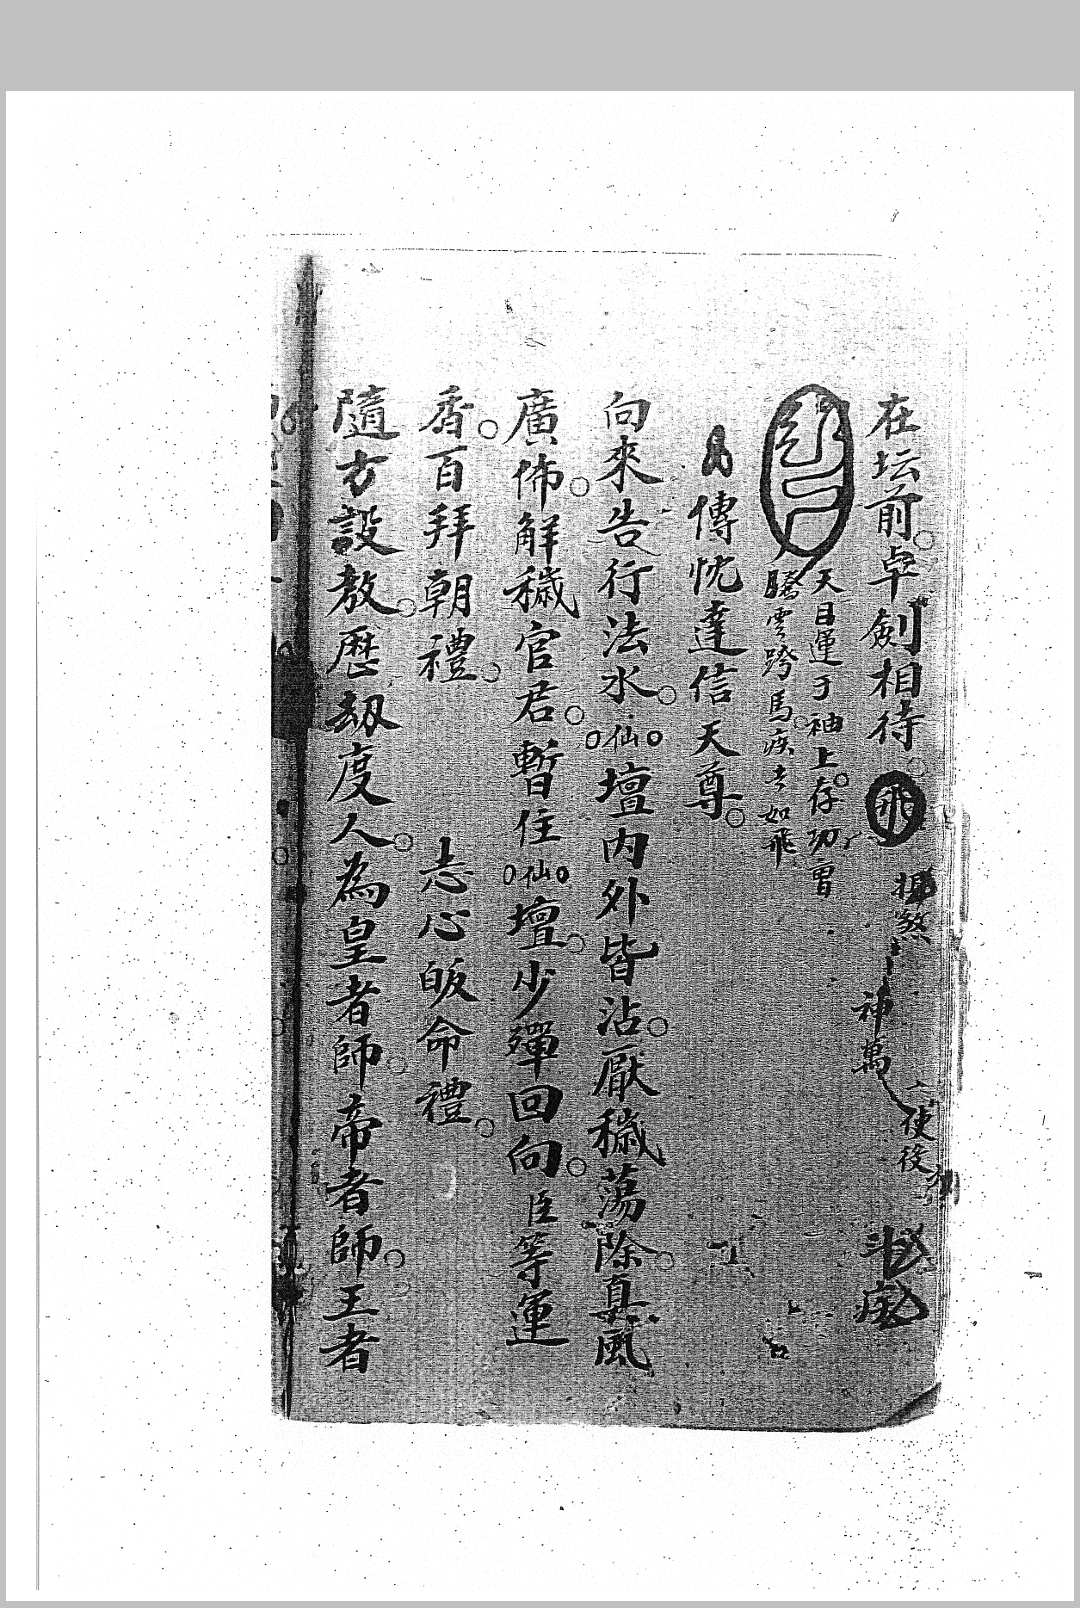 在坛前卓劍相待 飛
神萬
使役
天目運于袖上存功曹
騰雲跨馬疾去如飛
傳忱達信天尊
向來告行法水仙壇内外皆沾厭穢蕩除真風
廣佈解穢官君暫住仙壇少殫回向臣等運
香百拜朝禮 志心皈命禮
隨方設教歷劫度人為皇者師帝者師王者